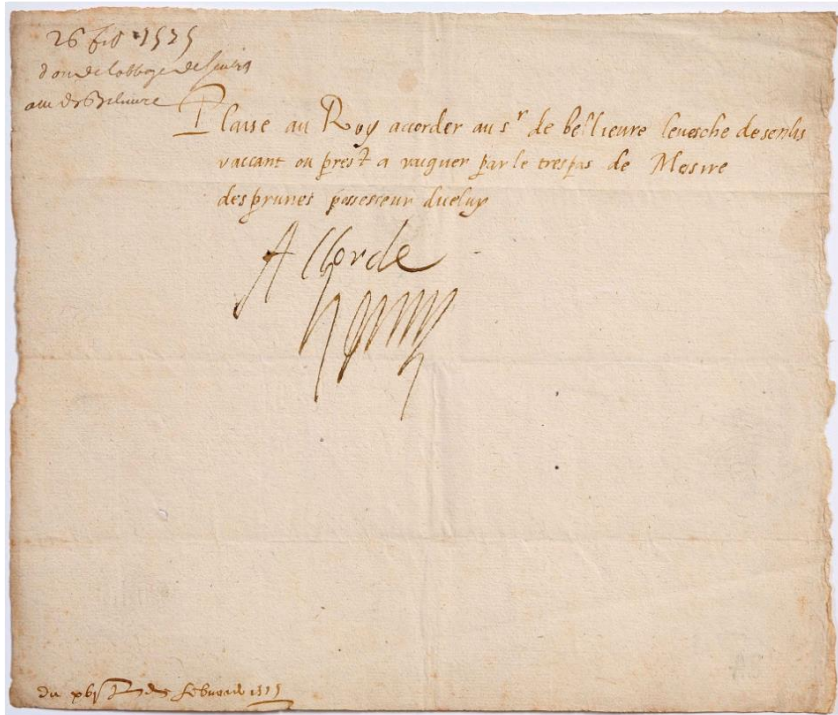 26 feb 1575
don de labbaye de senlis
a m. de Belieure
Plaise au Roy accorder au sr de bellieure levesche de senlis
vaccant ou prest a vacquer par le trespas de Messire
des prunes possesseur diceluy
Accorde
Henry
du xxvje de februier 1575